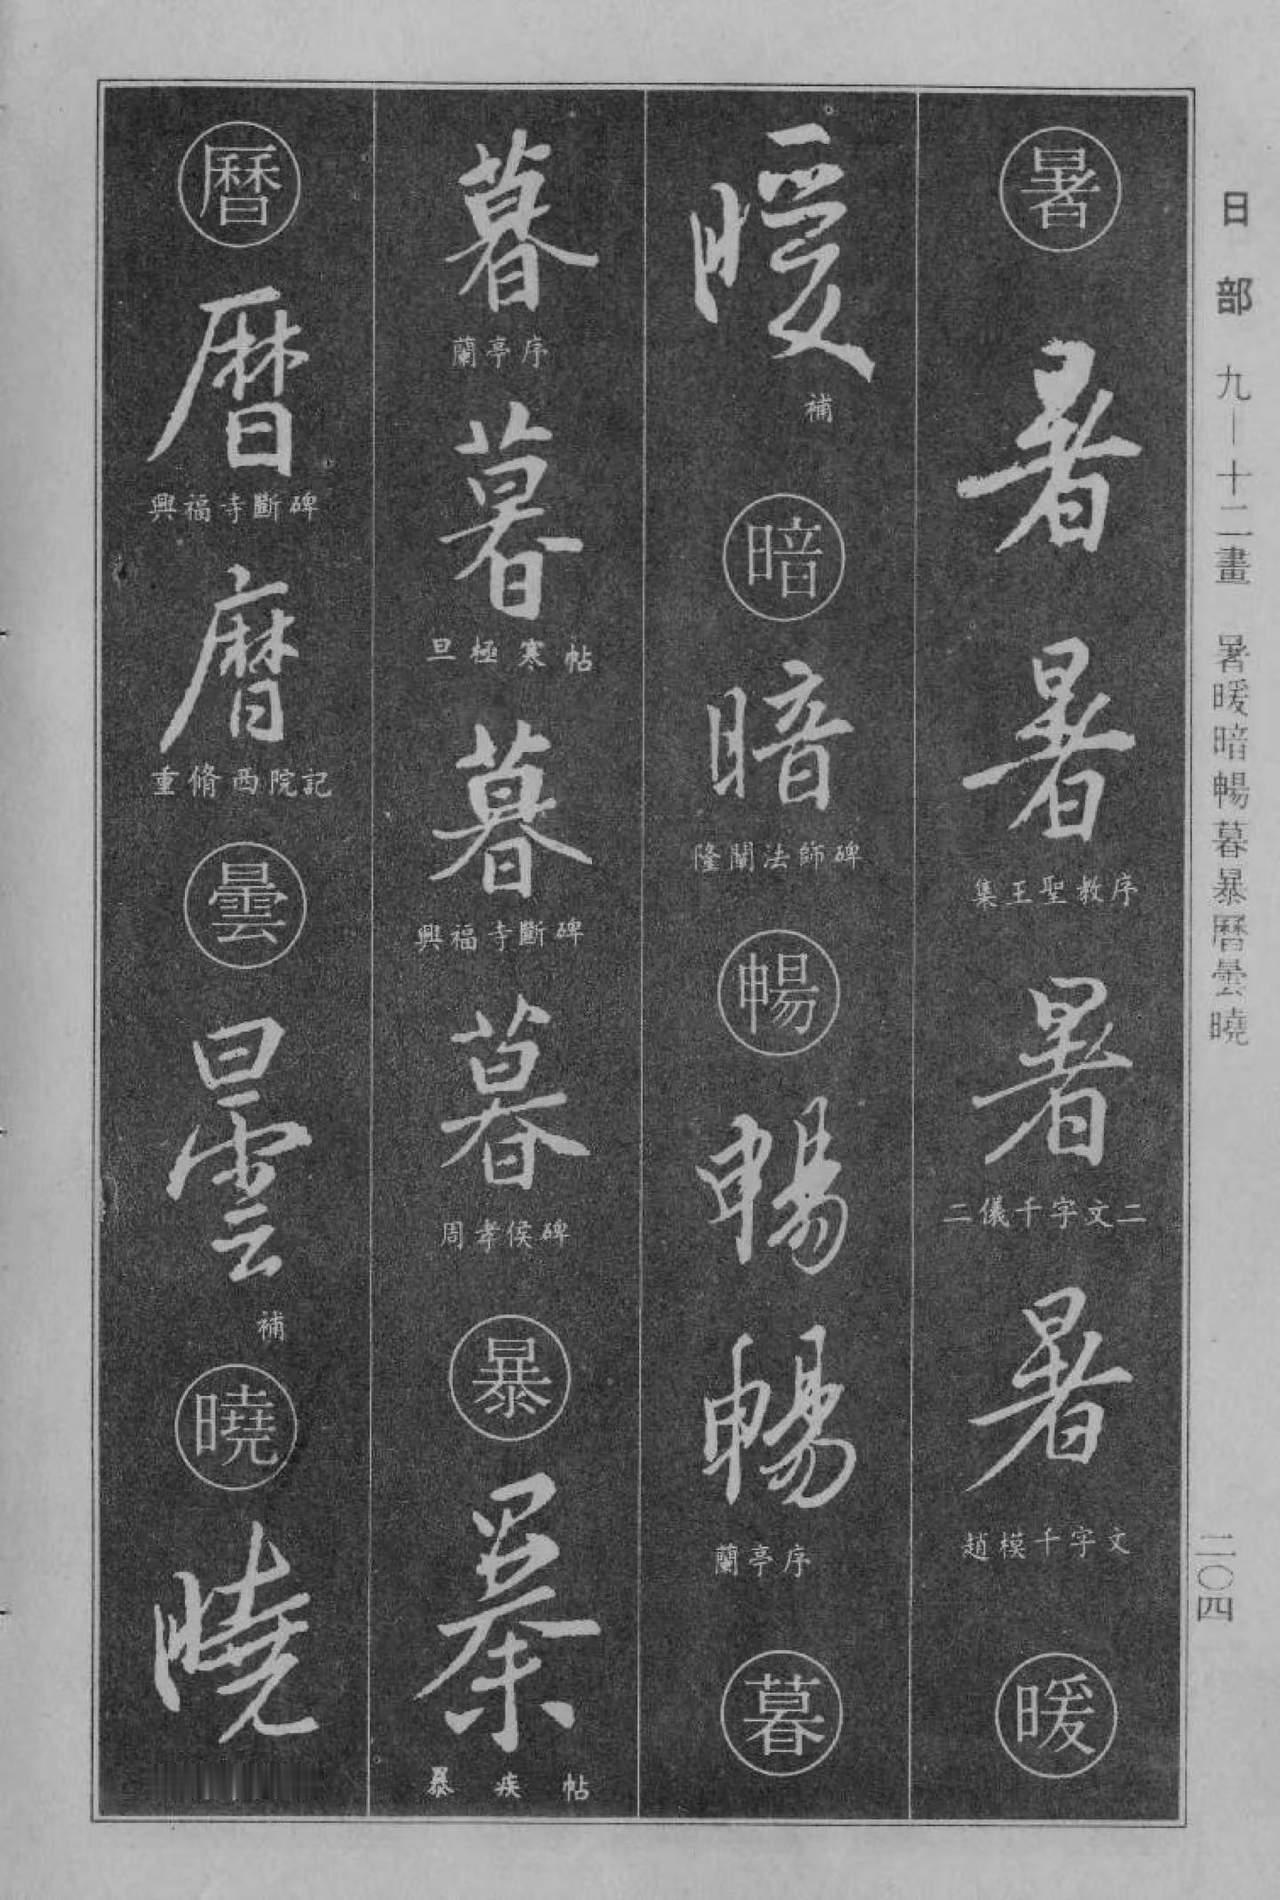 日部 九—十二畫 暑暖暗暢暮暴曆曇曉
二〇四
暑
暑
暑
集王聖教序
暑
二儀千字文二
暑
趙模千字文
暖
暖
補
暗
暗
隆闡法師碑
暢
暢
暢
蘭亭序
暮
暮
蘭亭序
暮
旦極寒帖
暮
興福寺斷碑
暮
周孝侯碑
暴
暴
暴疾帖
曆
曆
興福寺斷碑
曆
重脩西院記
曇
曇
補
曉
曉